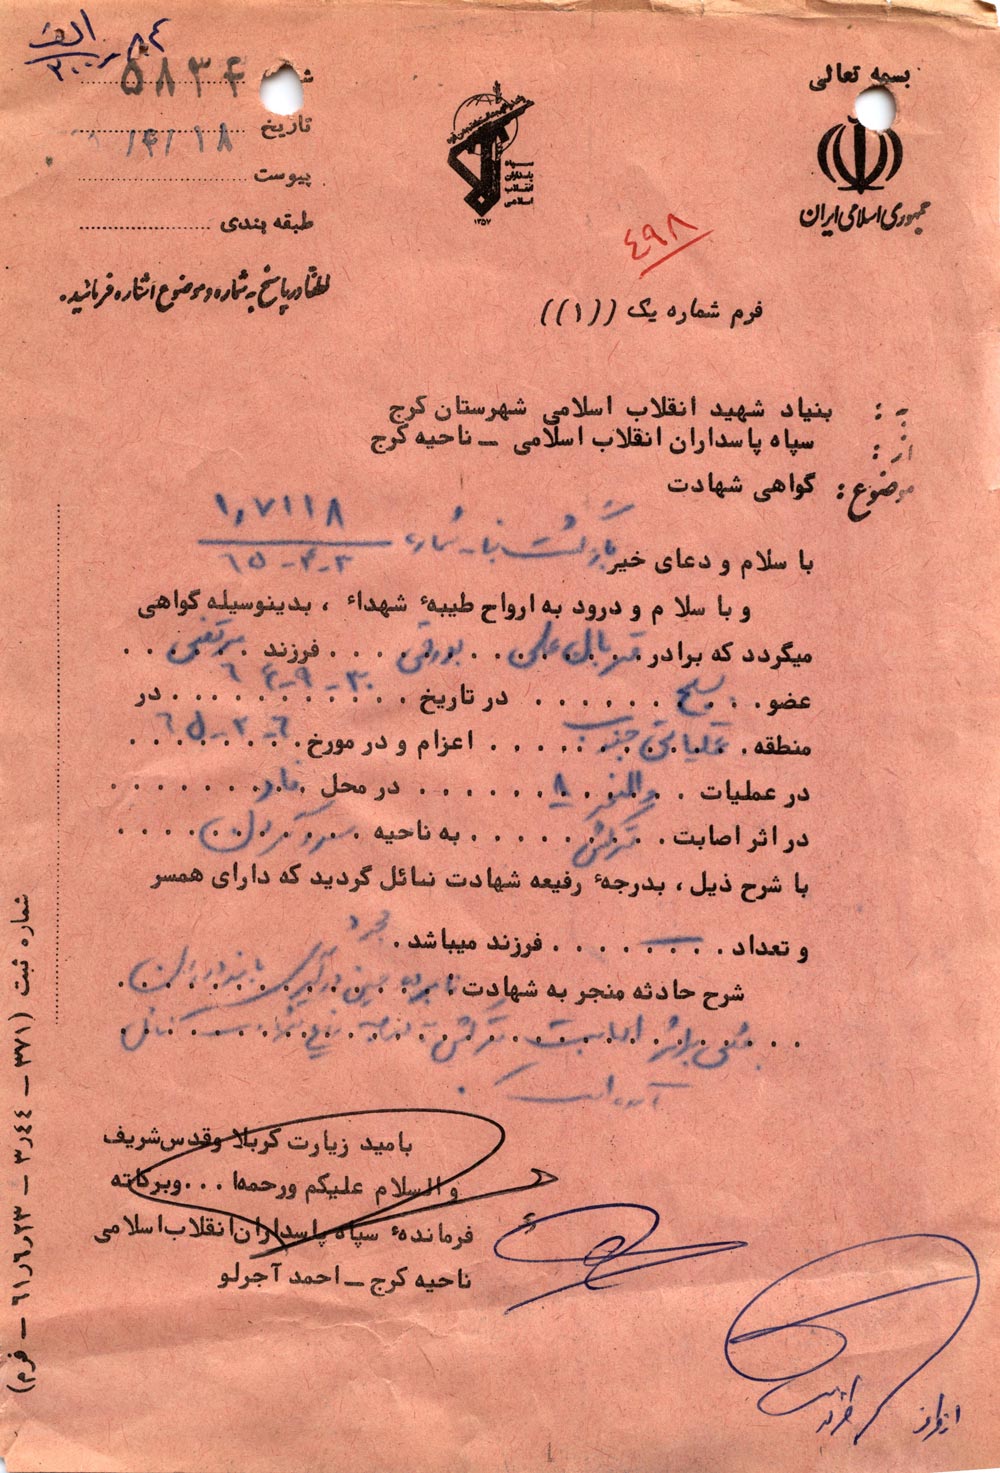 بسمه تعالی
جمهوری اسلامی ایران
سپاه
پاسداران
انقلاب
اسلامی
۱۳۵۷
الف ۸۴
شماره ۵۸۳۴
تاریخ ۱۸/۴/
پیوست
طبقه بندی
لطفاً در پاسخ به شماره و موضوع اشاره فرمائید.
۴۹۸
فرم شماره یک ((۱))
به : بنیاد شهید انقلاب اسلامی شهرستان کرج
از : سپاه پاسداران انقلاب اسلامی ـ ناحیه کرج
موضوع : گواهی شهادت
بازگشت بنامه شماره
۶۵-۴-۲
با سلام و دعای خیر
و با سلام و درود به ارواح طیبهٔ شهداء ، بدینوسیله گواهی
میگردد که برادر قربانعلی بورقی فرزند مرتضی
عضو بسیج در تاریخ ۳۰-۹-۶۴ در
منطقه عملیاتی جنوب اعزام و در مورخ ۶-۲-۶۵
در عملیات والفجر ۸ در محل فاو
در اثر اصابت ترکش به ناحیه سر و گردن
با شرح ذیل ، بدرجهٔ رفیعه شهادت نائل گردید که دارای همسر
مجرد
و تعداد ـ فرزند میباشد .
شرح حادثه منجر به شهادت : نامبرده حین درگیری با مزدوران
بعثی براثر اصابت ترکش به درجه رفیع شهادت نائل
آمده است .
بامید زیارت کربلا وقدس شریف
والسلام علیکم ورحمها ... وبرکاته
فرماندهٔ سپاه پاسداران انقلاب اسلامی
ناحیه کرج ـ احمد آجرلو
شماره ثبت (۳۷۱ ـ ۳٫۴۴ ـ ۶۱٫۶٫۲۳ ـ فرم)